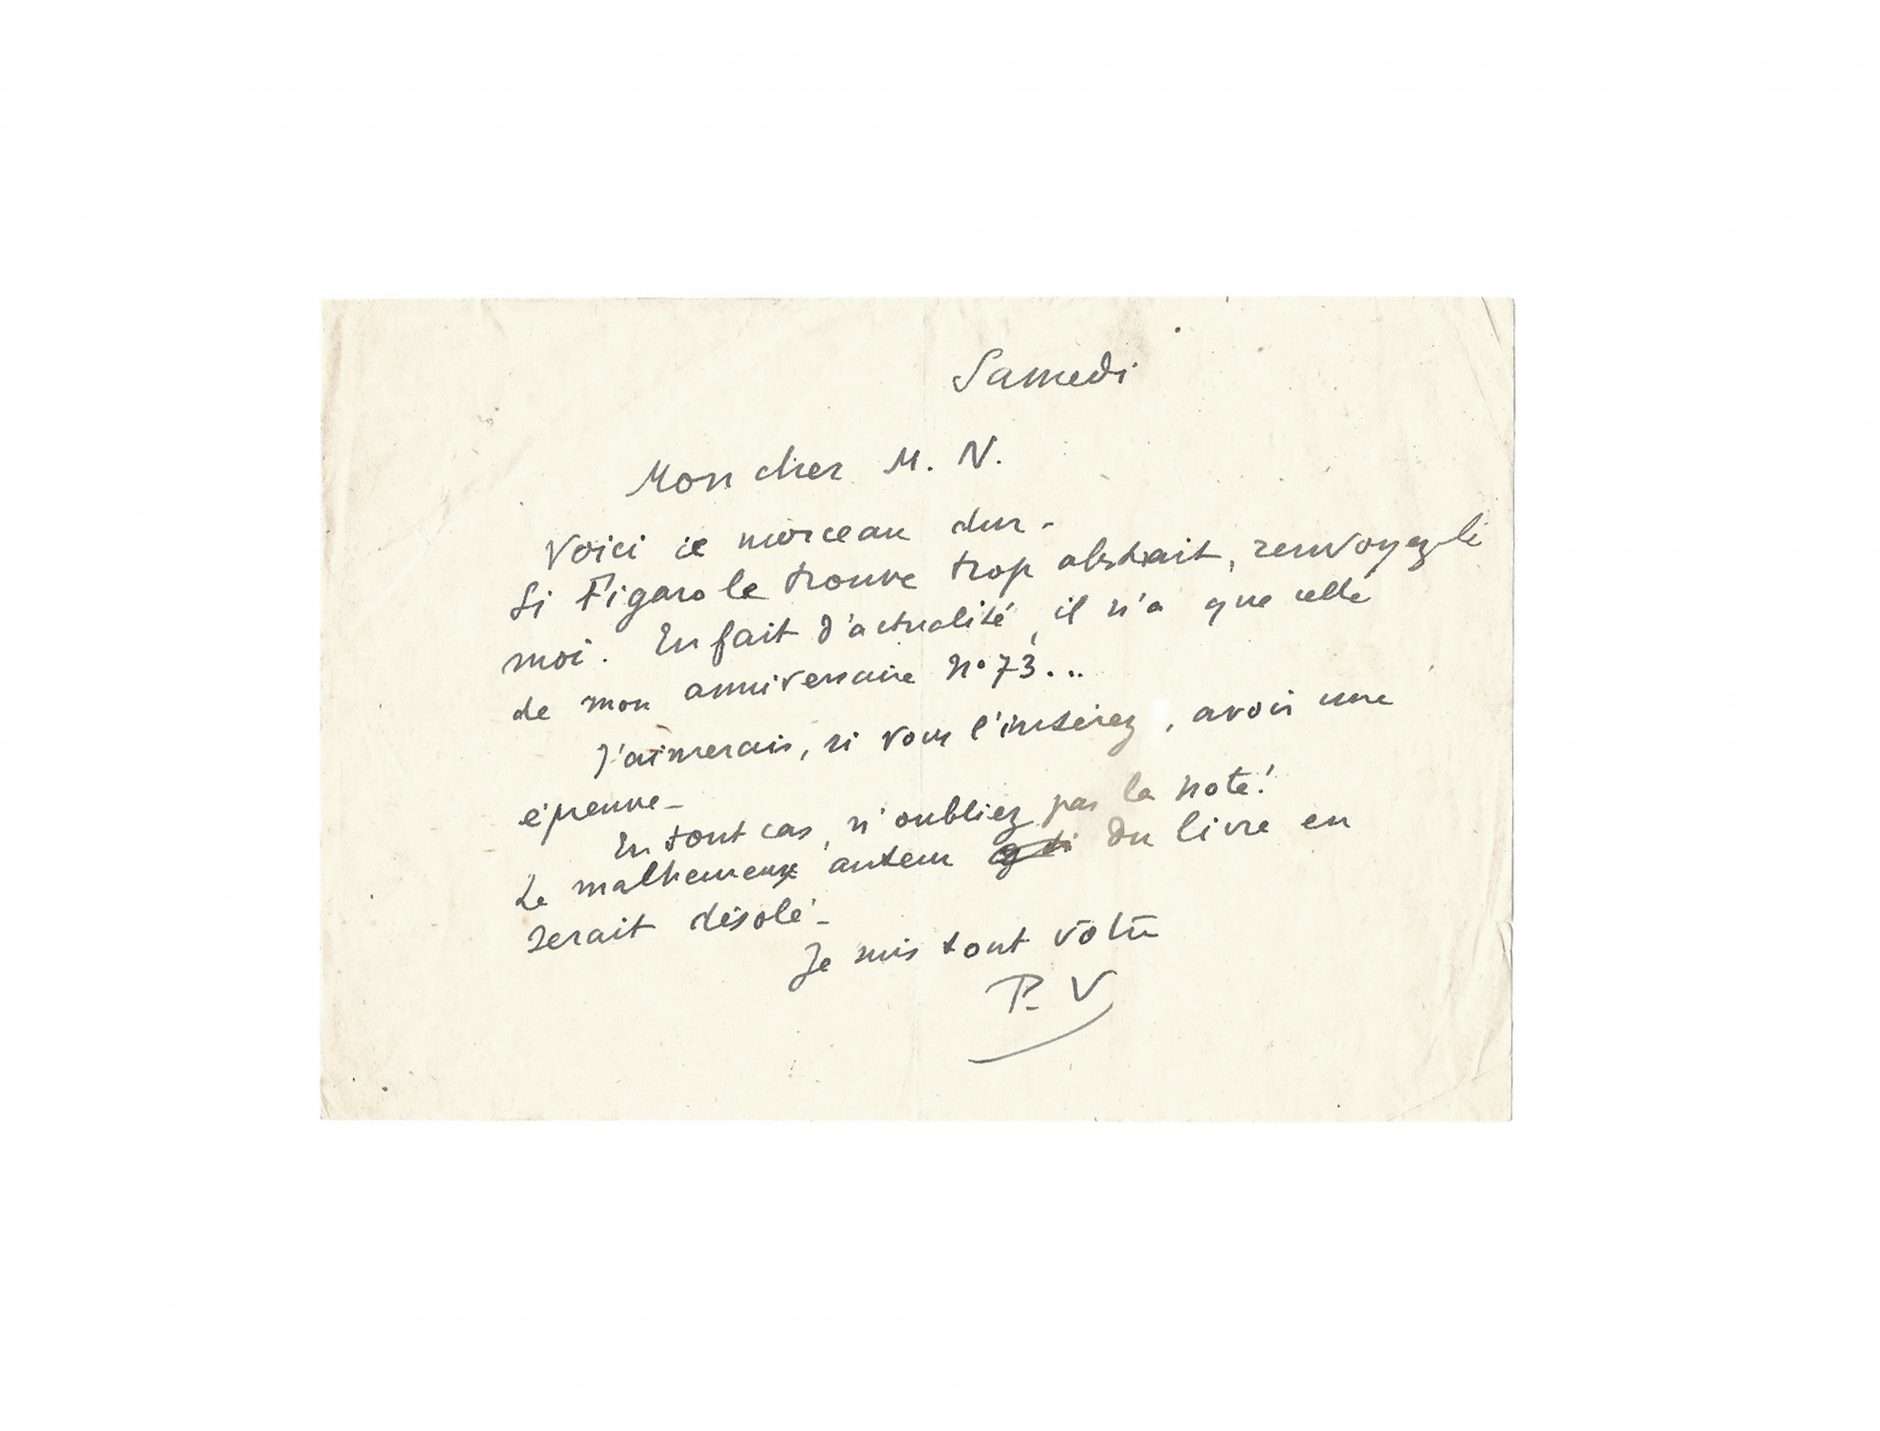 Samedi
Mon cher M. N.
Voici ce morceau dur -
Si Figaro le trouve trop abstrait, renvoyez-le
moi. En fait d'actualité, il n'a que celle
de mon anniversaire N° 73...
J'aimerais, si vous l'insérez, avoir une
épreuve -
En tout cas, n'oubliez pas la note!
Le malheureux auteur du livre en
serait désolé -
Je suis tout vôtre
P. V